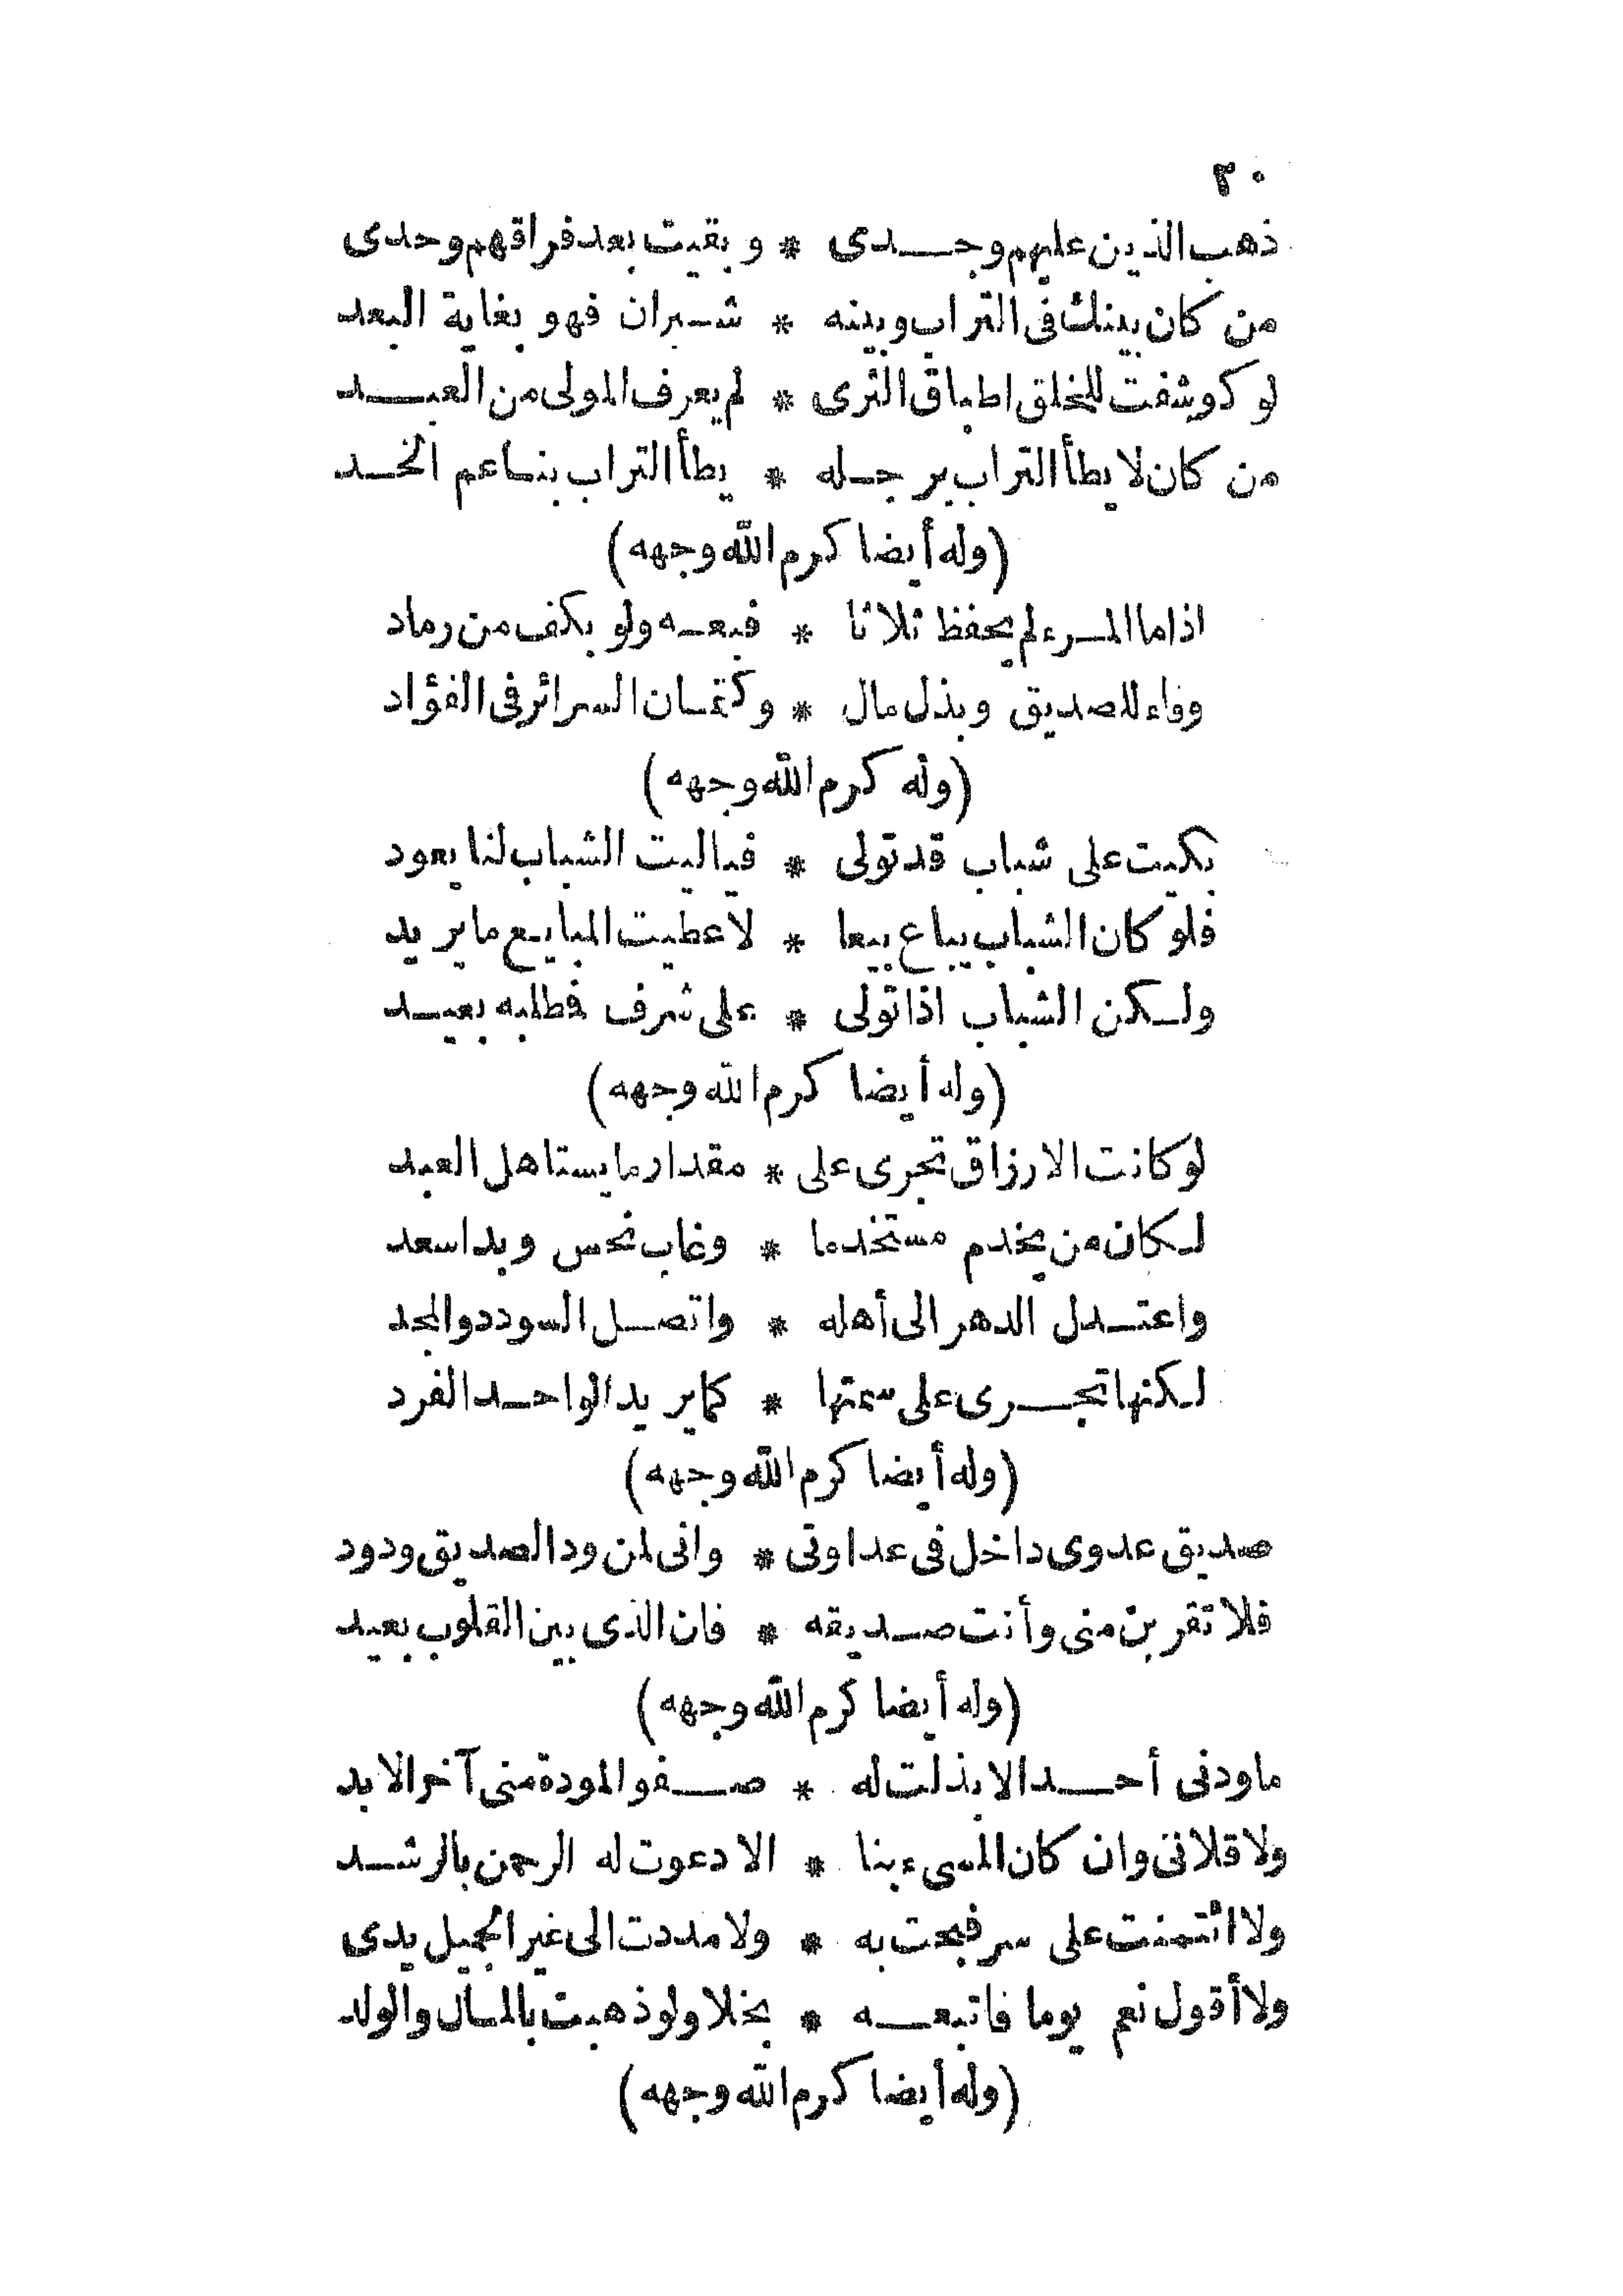 ٣٠
ذهب الذين عليهم وجدى * وبقيت بعد فراقهم وحدى
من كان بينك فى التراب وبينه * شبران فهو بغاية البعد
لو كوشفت للخلق اطباق الثرى * لم يعرف المولى من العبد
من كان لا يطأ التراب برجله * يطأ التراب بناعم الخد
(وله أيضا كرم الله وجهه)
اذا ما المرء لم يحفظ ثلاثا * فبعه ولو بكف من رماد
وفاء للصديق وبذل مال * وكتمان السرائر فى الفؤاد
(وله كرم الله وجهه)
بكيت على شباب قد تولى * فياليت الشباب لنا يعود
فلو كان الشباب يباع بيعا * لاعطيت المبايع ما يريد
ولكن الشباب اذا تولى * على شرف فطلبه بعيد
(وله أيضا كرم الله وجهه)
لو كانت الارزاق تجرى على * مقدار ما يستاهل العبد
لكان من يخدم مستخدما * وغاب نحس وبدا سعد
واعتدل الدهر الى أهله * واتصل السودد والمجد
لكنها تجرى على سمتها * كما يريد الواحد الفرد
(وله أيضا كرم الله وجهه)
صديق عدوى داخل فى عداوتى * وانى لمن ود الصديق ودود
فلا تقربن منى وأنت صديقه * فان الذى بين القلوب بعيد
(وله أيضا كرم الله وجهه)
ما ودنى أحد الا بذلت له * صفو المودة منى آخر الابد
ولا قلانى وان كان المسىء بنا * الا دعوت له الرحمن بالرشد
ولا ائتمنت على سر فبحت به * ولا مددت الى غير الجميل يدى
ولا أقول نعم يوما فاتبعه * بخلا ولو ذهبت بالمال والولد
(وله أيضا كرم الله وجهه)